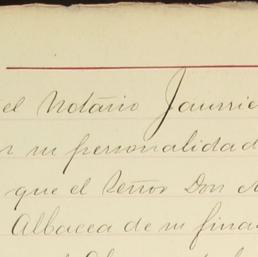 el Notario Jaurrie
r su personalidad
que el Señor Don
Albacea de su fina